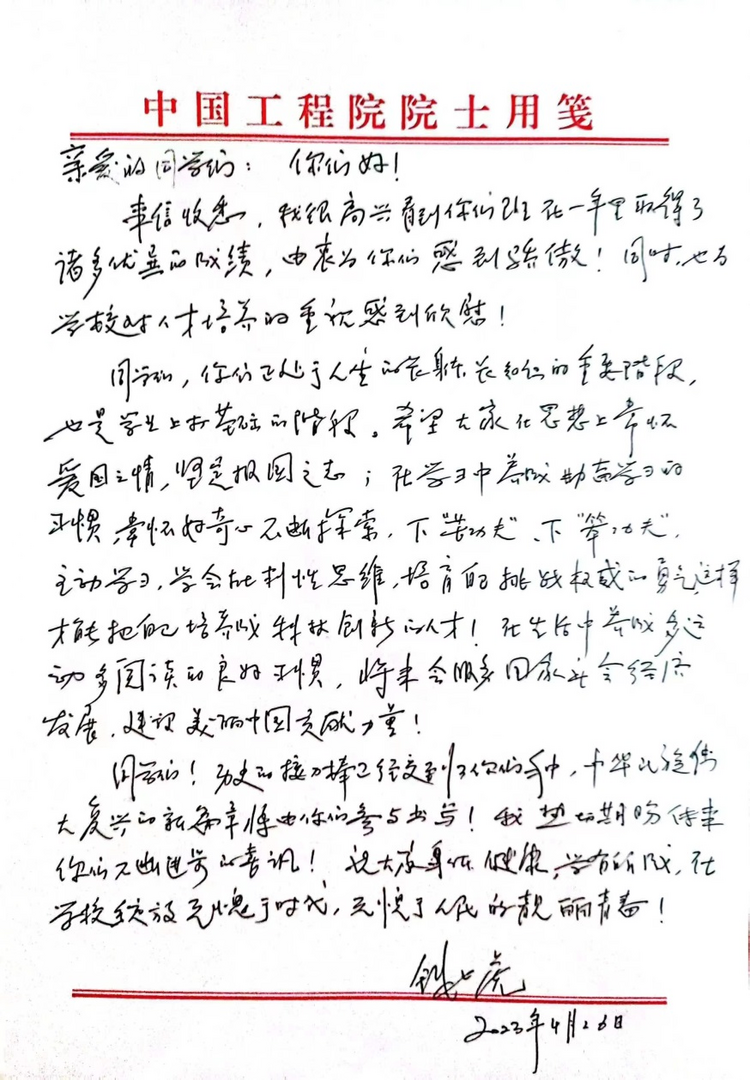 中国工程院院士用笺
亲爱的同学们： 你们好！
来信收悉，我很高兴看到你们班在一年里取得了
诸多优异的成绩，由衷为你们感到骄傲！同时，也为
学校对人才培养的重视感到欣慰！
同学们，你们正处于人生的长身体、长知识的重要阶段，
也是学业上打基础的阶段。希望大家在思想上常怀
爱国之情，坚定报国之志；在学习中养成勤奋学习的
习惯，常怀好奇心不断探索，下“苦功夫”、下“笨功夫”，
主动学习，学会批判性思维，培育敢挑战权威的勇气，这样
才能把自己培养成科技创新的人才！在生活中养成多运
动多阅读的良好习惯，将来会服务国家社会经济
发展，建设美丽中国贡献力量！
同学们！历史的接力棒已经交到了你们手中，中华民族伟
大复兴的新篇章将由你们参与书写！我热切期盼传来
你们不断进步的喜讯！祝大家身体健康，学有所成，在
学校绽放无愧于时代，无愧于人民的靓丽青春！
钱七虎
2023年4月26日